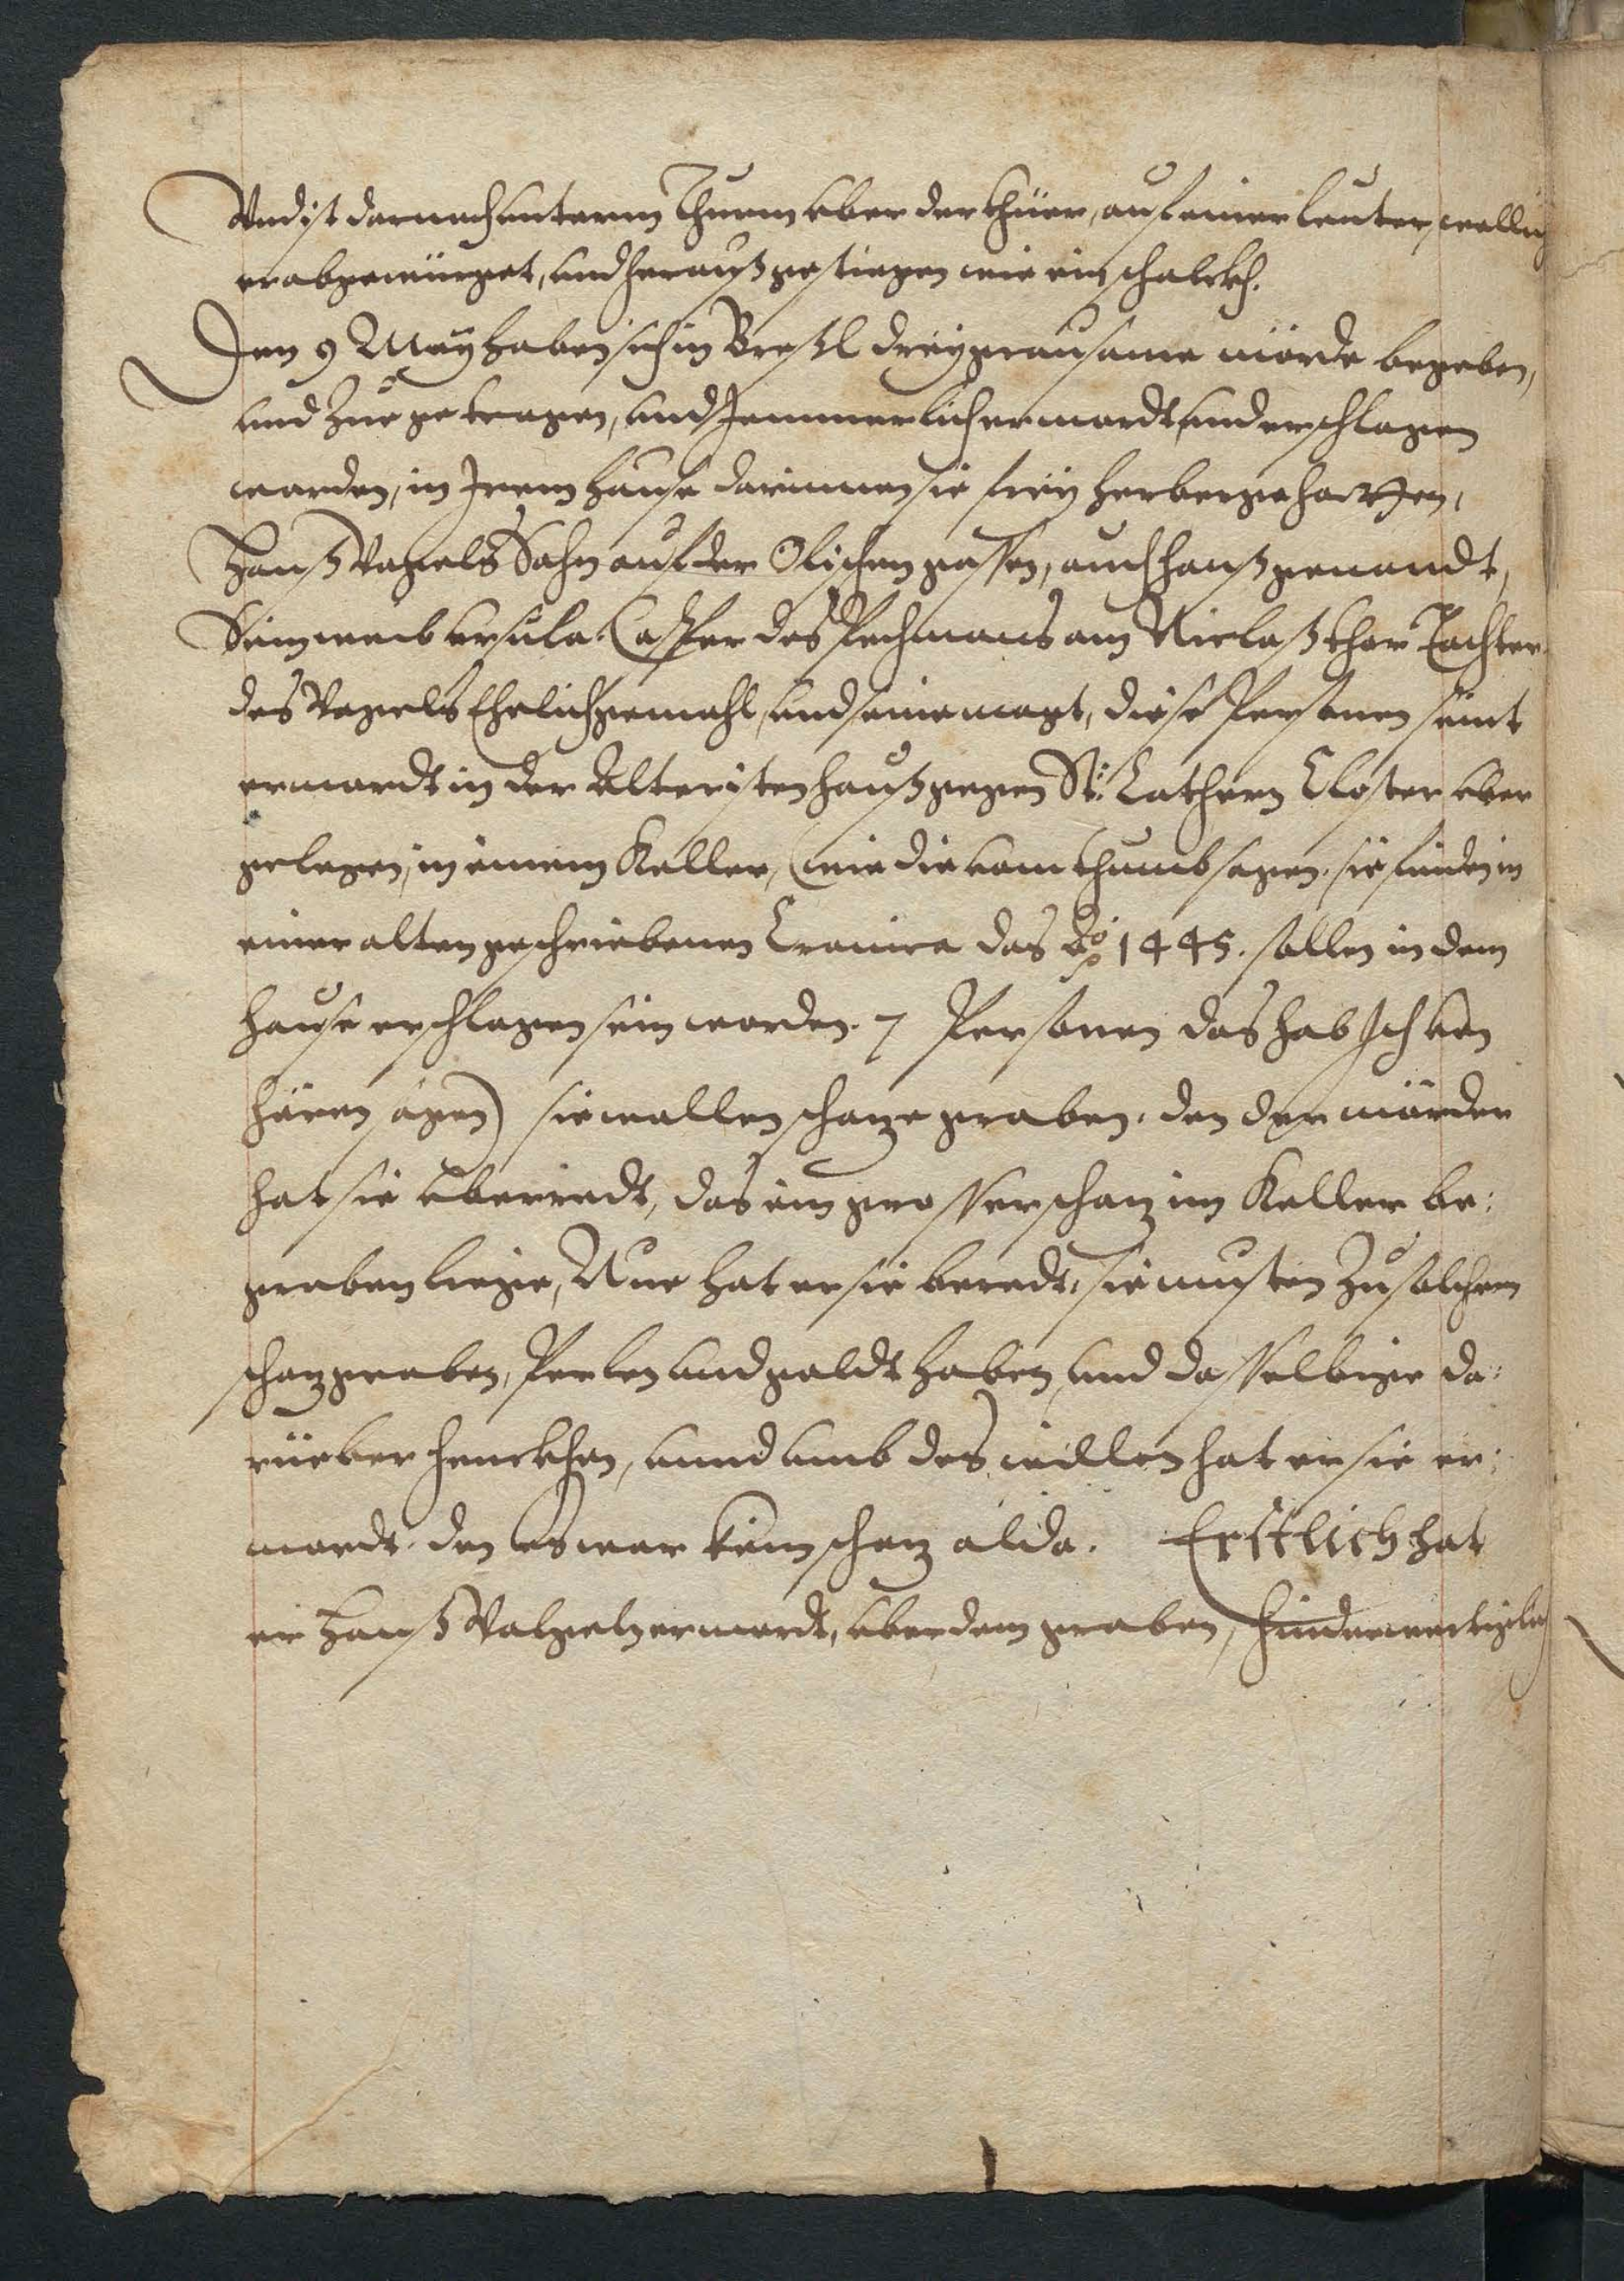 Und ist darnach unterm Thurm uber der thüer, auf einer leuter, wollig
erabgewürget, und herauß gestiegen wie ein schalckh.
Den 9 Mayhaben sich in Breßl drey grausame mörde begeben,
und zue getragen, und Jemmerlich ermordt, und erschlagen
worden, in Irem hause darinnen sie frey herberge hatten,
Hanß Vogels Sohn auf der Olischen gassen, auch hanß genandt,
Sein weib ursula. Casper des Pechmans am Niclaß thor Tochter
des Vogels Ehelich gemahl, und seine magt, diese Personen seint
ermordt in der Alteristen hauß gegen St: Cathern Closter uber
gelegen, in einem Keller, (wie die vom thumb sagen. sie finden in
einer alten geschriebenen Cronica das Ao 1445. sollen in dem
hause erschlagen sein worden. 7 Personen das hab Ich von
hören sagen) sie wollen schatze graben. den der mörder
hat sie überredt, das ein grosser schatz im Keller be:
graben liege, Nue hat er sie beredt, sie musten zu solchem
schatzgraben, Perlen und goldt haben, und dasselbige da:
rüeber henckhen, unnd umb des willen hat er sie er:
mordt. den es war kein schatz alda. Erstlich hat
er Hanß Vogeln ermordt, uber dem graben, hinderwertiglich